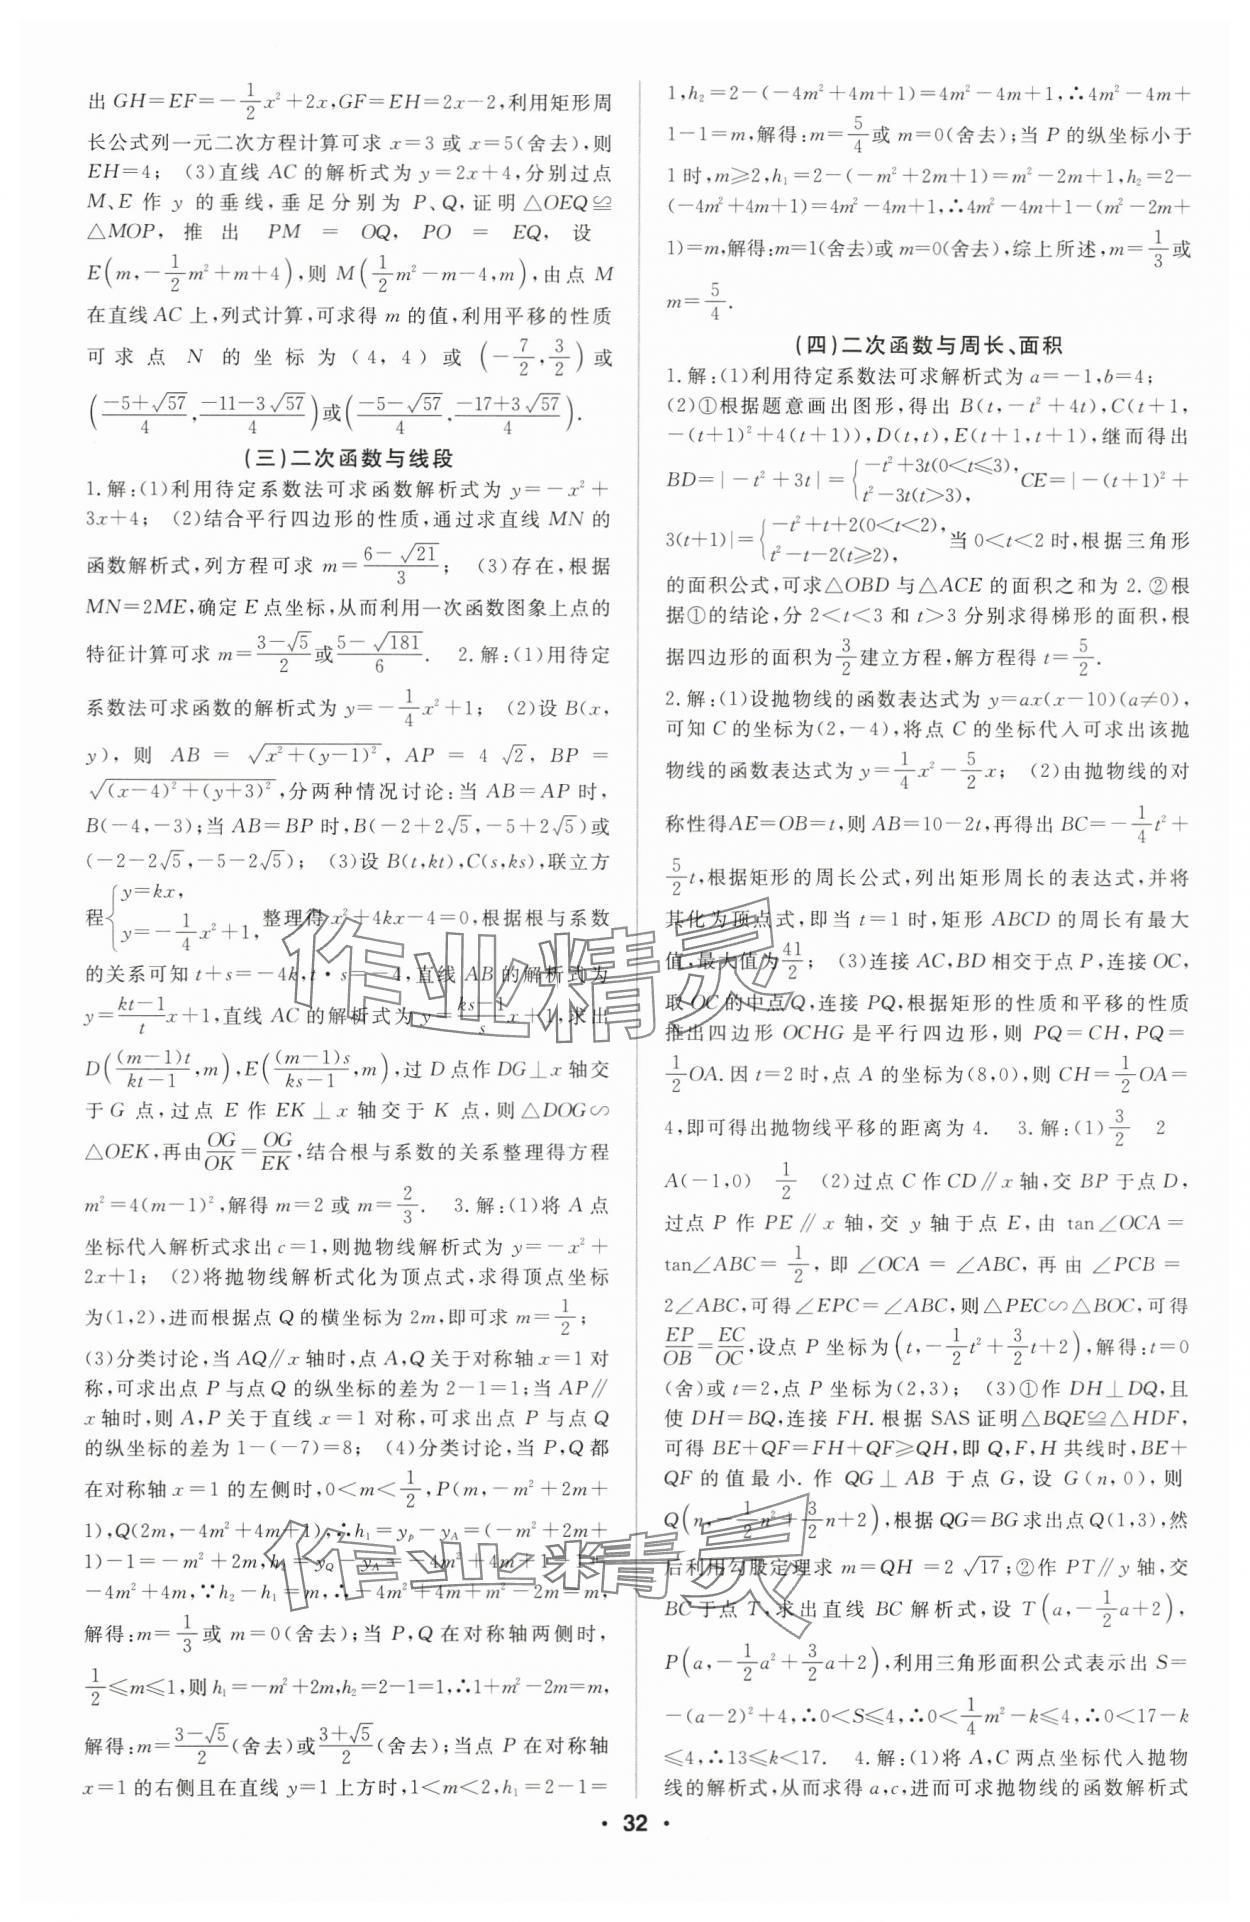 出 GH=EF=-\frac{1}{2}x²+2x,GF=EH=2x-2,利用矩形周
长公式列一元二次方程计算可求 x=3 或 x=5(舍去),则
EH=4; (3)直线 AC 的解析式为 y=2x+4,分别过点
M、E 作 y 的垂线,垂足分别为 P、Q,证明△OEQ≌
△MOP, 推出 PM = OQ, PO = EQ, 设
E(m,-\frac{1}{2}m²+m+4),则 M(\frac{1}{2}m²-m-4,m),由点 M
在直线 AC 上,列式计算,可求得 m 的值,利用平移的性质
可求点 N 的坐标为(4,4)或(-\frac{7}{2},\frac{3}{2})或
(\frac{-5+√57}{4},\frac{-11-3√57}{4})或(\frac{-5-√57}{4},\frac{-17+3√57}{4}).
(三)二次函数与线段
1.解:(1)利用待定系数法可求函数解析式为 y=-x²+
3x+4; (2)结合平行四边形的性质,通过求直线 MN 的
函数解析式,列方程可求 m=\frac{6-√21}{3}; (3)存在,根据
MN=2ME,确定 E 点坐标,从而利用一次函数图象上点的
特征计算可求 m=\frac{3-√5}{2}或\frac{5-√181}{6}. 2.解:(1)用待定
系数法可求函数的解析式为 y=-\frac{1}{4}x²+1; (2)设 B(x,
y), 则 AB = √(x²+(y-1)²), AP = 4√2, BP =
√((x-4)²+(y+3)²),分两种情况讨论:当 AB=AP 时,
B(-4,-3);当 AB=BP 时,B(-2+2√5,-5+2√5)或
(-2-2√5,-5-2√5); (3)设 B(t,kt),C(s,ks),联立方
程{y=kx, y=-\frac{1}{4}x²+1,整理得 x²+4kx-4=0,根据根与系数
的关系可知 t+s=-4k,t·s=-4,直线 AB 的解析式为
y=\frac{kt-1}{t}x+1,直线 AC 的解析式为 y=\frac{ks-1}{s}x+1,求出
D(\frac{(m-1)t}{kt-1},m),E(\frac{(m-1)s}{ks-1},m),过 D 点作 DG⊥x 轴交
于 G 点,过点 E 作 EK⊥x 轴交于 K 点,则△DOG∽
△OEK,再由\frac{OG}{OK}=\frac{OG}{EK},结合根与系数的关系整理得方程
m²=4(m-1)²,解得 m=2 或 m=\frac{2}{3}. 3.解:(1)将 A 点
坐标代入解析式求出 c=1,则抛物线解析式为 y=-x²+
2x+1; (2)将抛物线解析式化为顶点式,求得顶点坐标
为(1,2),进而根据点 Q 的横坐标为 2m,即可求 m=\frac{1}{2};
(3)分类讨论,当 AQ∥x 轴时,点 A,Q 关于对称轴 x=1 对
称,可求出点 P 与点 Q 的纵坐标的差为 2-1=1;当 AP∥
x 轴时,则 A,P 关于直线 x=1 对称,可求出点 P 与点 Q
的纵坐标的差为 1-(-7)=8; (4)分类讨论,当 P,Q 都
在对称轴 x=1 的左侧时,0<m<\frac{1}{2},P(m,-m²+2m+
1),Q(2m,-4m²+4m+1),∴h₁=y_P-y_A=(-m²+2m+
1)-1=-m²+2m,h₂=y_Q-y_A=-4m²+4m+1-1=
-4m²+4m,∵h₂-h₁=m,∴-4m²+4m+m²-2m=m,
解得:m=\frac{1}{3}或 m=0(舍去);当 P,Q 在对称轴两侧时,
\frac{1}{2}≤m≤1,则 h₁=-m²+2m,h₂=2-1=1,∴1+m²-2m=m,
解得:m=\frac{3-√5}{2}(舍去)或\frac{3+√5}{2}(舍去);当点 P 在对称轴
x=1 的右侧且在直线 y=1 上方时,1<m<2,h₁=2-1=
1,h₂=2-(-4m²+4m+1)=4m²-4m+1,∴4m²-4m+
1-1=m,解得:m=\frac{5}{4}或 m=0(舍去);当 P 的纵坐标小于
1 时,m≥2,h₁=2-(-m²+2m+1)=m²-2m+1,h₂=2-
(-4m²+4m+1)=4m²-4m+1,∴4m²-4m+1-(m²-2m+
1)=m,解得:m=1(舍去)或 m=0(舍去),综上所述,m=\frac{1}{3}或
m=\frac{5}{4}.
(四)二次函数与周长、面积
1.解:(1)利用待定系数法可求解析式为 a=-1,b=4;
(2)①根据题意画出图形,得出 B(t,-t²+4t),C(t+1,
-(t+1)²+4(t+1)),D(t,t),E(t+1,t+1),继而得出
BD=|-t²+3t|={-t²+3t(0<t≤3), t²-3t(t>3), CE=|-(t+1)²+
3(t+1)|={-t²+t+2(0<t<2), t²-t-2(t≥2), 当 0<t<2 时,根据三角形
的面积公式,可求△OBD 与△ACE 的面积之和为 2.②根
据①的结论,分 2<t<3 和 t>3 分别求得梯形的面积,根
据四边形的面积为\frac{3}{2}建立方程,解方程得 t=\frac{5}{2}.
2.解:(1)设抛物线的函数表达式为 y=ax(x-10)(a≠0),
可知 C 的坐标为(2,-4),将点 C 的坐标代入可求出该抛
物线的函数表达式为 y=\frac{1}{4}x²-\frac{5}{2}x; (2)由抛物线的对
称性得AE=OB=t,则 AB=10-2t,再得出 BC=-\frac{1}{4}t²+
\frac{5}{2}t,根据矩形的周长公式,列出矩形周长的表达式,并将
其化为顶点式,即当 t=1 时,矩形 ABCD 的周长有最大
值,最大值为\frac{41}{2}; (3)连接 AC,BD 相交于点 P,连接 OC,
取 OC 的中点 Q,连接 PQ,根据矩形的性质和平移的性质
推出四边形 OCHG 是平行四边形,则 PQ=CH,PQ=
\frac{1}{2}OA.因 t=2 时,点 A 的坐标为(8,0),则 CH=\frac{1}{2}OA=
4,即可得出抛物线平移的距离为 4. 3.解:(1)\frac{3}{2} 2
A(-1,0) \frac{1}{2} (2)过点 C 作 CD∥x 轴,交 BP 于点 D,
过点 P 作 PE∥x 轴,交 y 轴于点 E,由 tan∠OCA=
tan∠ABC=\frac{1}{2},即 ∠OCA = ∠ABC,再由 ∠PCB =
2∠ABC,可得∠EPC=∠ABC,则△PEC∽△BOC,可得
\frac{EP}{OB}=\frac{EC}{OC},设点 P 坐标为(t,-\frac{1}{2}t²+\frac{3}{2}t+2),解得:t=0
(舍)或 t=2,点 P 坐标为(2,3); (3)①作 DH⊥DQ,且
使 DH=BQ,连接 FH.根据 SAS 证明△BQE≌△HDF,
可得 BE+QF=FH+QF≥QH,即 Q,F,H 共线时,BE+
QF 的值最小.作 QG⊥AB 于点 G,设 G(n,0),则
Q(n,-\frac{1}{2}n²+\frac{3}{2}n+2),根据 QG=BG 求出点 Q(1,3),然
后利用勾股定理求 m=QH=2√17;②作 PT∥y 轴,交
BC 于点 T,求出直线 BC 解析式,设 T(a,-\frac{1}{2}a+2),
P(a,-\frac{1}{2}a²+\frac{3}{2}a+2),利用三角形面积公式表示出 S=
-(a-2)²+4,∴0<S≤4,∴0<\frac{1}{4}m²-k≤4,∴0<17-k
≤4,∴13≤k<17. 4.解:(1)将 A,C 两点坐标代入抛物
线的解析式,从而求得 a,c,进而可求抛物线的函数解析式
· 32 ·
作业精灵
作业精灵